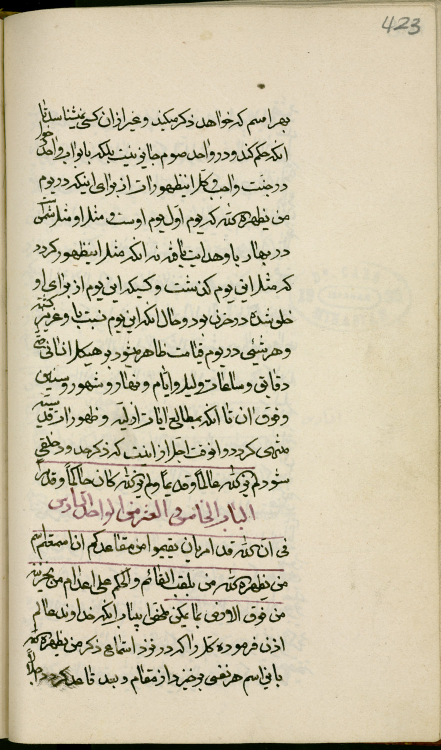 423
بهر اسم که خواهد ذکر میکند و غیر از ان کسی نیشناسد تا
انکه حکم کند و در واحد صوم جایز نیست بلکه با بواب واحد
در جنت واجب و کل این ظهورات از برای اینکه در یوم
من یظهره الله که یوم اول یوم اوست و مثل او مثل شمس
در بهار با و هدایت یافته نه انکه مثل این ظهور کردد
که مثل این یوم کن نیست و کسیکه این یوم از برای او
خلق شده در حزن بود و حال انکه این یوم نسبت باو عزیز
و هر شیئی در یوم قیامت ظاهر میشود بر هیکل انسانی حتی
دقایق و ساعات و لیل و ایام و نهار و شهور و سنین
و فوق ان تا انکه بمطالع ایات اولیه و ظهورات قدسیه
منتهی کردد و انوقت اجل از اینست که ذکر حد و خلقی
شود لم یزل الله عالما و قدیما و لم یزل الله کان حاکما و قدیرا
الباب الخامس و العشر من الواحد السادس
فی ان الله قد امر بان یقیموا من مقاعدکم ان اسمعتم اسم
من یظهره الله من یلقب القائم و الحکم علی اعدام من یحزنه
من فوق الارض بما یکن ملخص این باب انکه خداوند عالم
اذن فرموده کل را که در نزد استماع ذکر من یظهره الله
باین اسم هر نفسی برخیزد از مقام و بعد قاعد کردد اجلالا